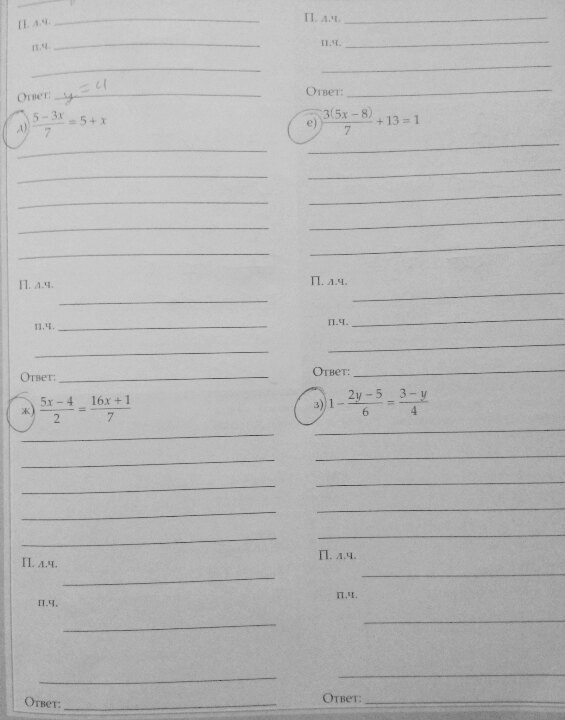 П. л.ч.
п.ч.
Ответ: y = 4
д) (5 − 3x)/7 = 5 + x
П. л.ч.
п.ч.
Ответ:
ж) (5x − 4)/2 = (16x + 1)/7
П. л.ч.
п.ч.
Ответ:
П. л.ч.
п.ч.
Ответ:
е) 3(5x − 8)/7 + 13 = 1
П. л.ч.
п.ч.
Ответ:
з) 1 − (2y − 5)/6 = (3 − y)/4
П. л.ч.
п.ч.
Ответ: